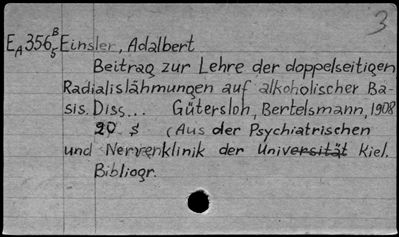 3
EA356 B5 Einsler, Adalbert
Beitrag zur Lehre der doppelseitigen
Radialislähmungen auf alkoholischer Ba-
sis. Diss... Gütersloh, Bertelsmann, 1908
20 S (Aus der Psychiatrischen
und Nervenklinik der Universität Kiel.
Bibliogr.